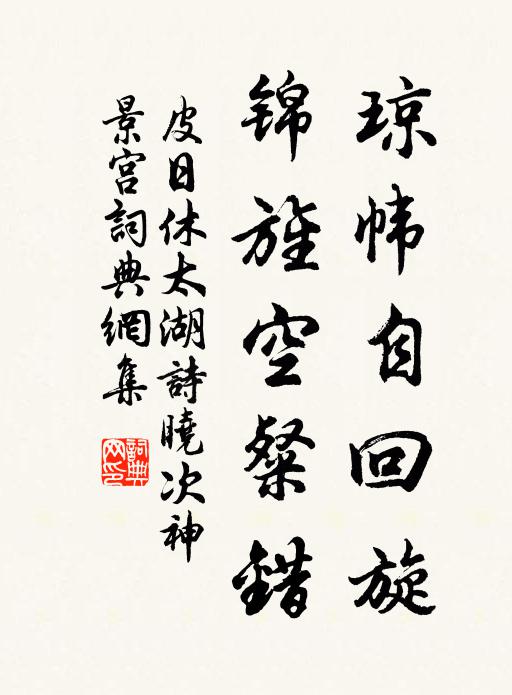 琼帏自回旋
锦旌空粲错
皮日休太湖詩曉次神
景宫詞典網集
詞典
网印